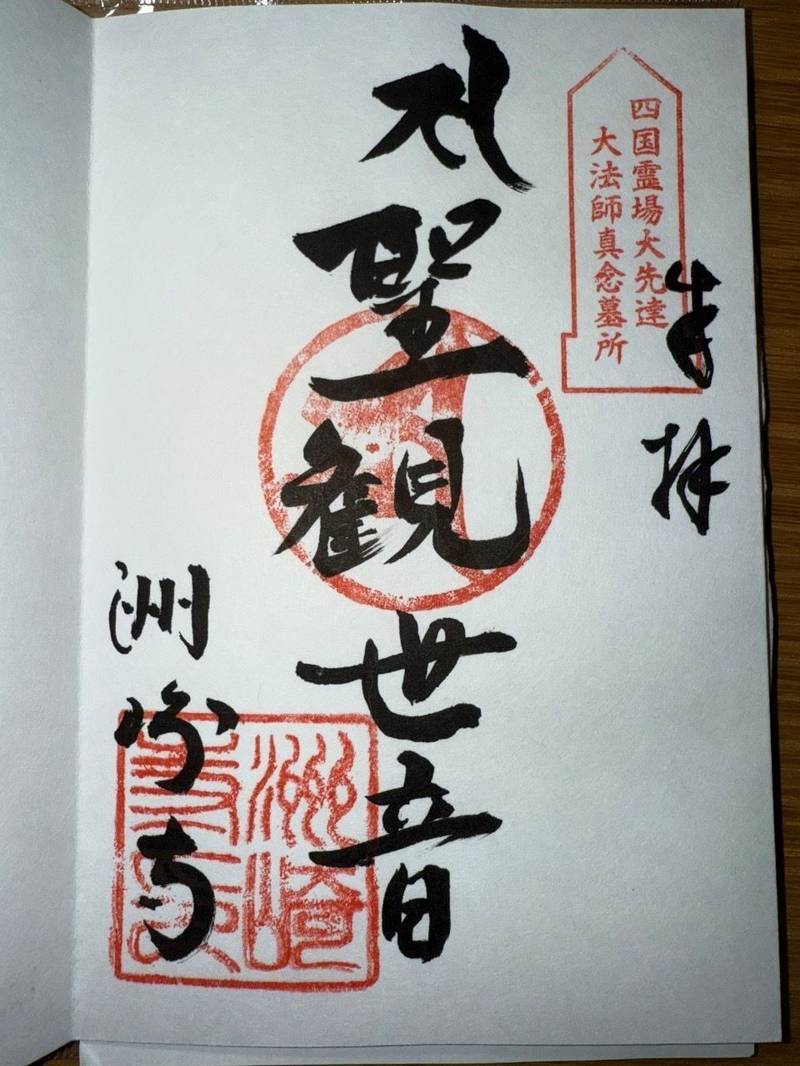 四国霊場大先達
大法師真念墓所
奉拝
聖観世音
洲崎寺
洲崎
寺印